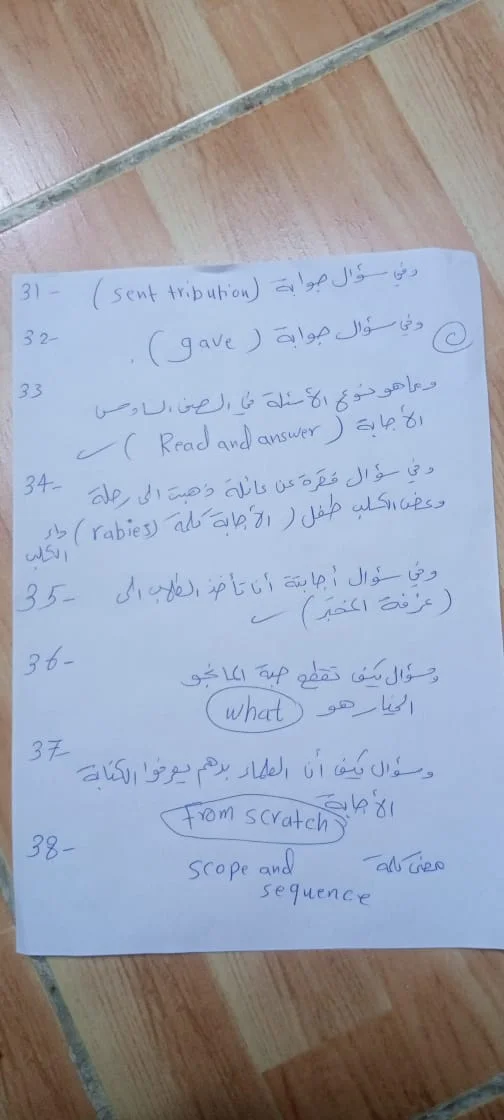 31- وفي سؤال جوابة (sent tribution)
32- وفي سؤال جوابة (gave).
33 وما هو نوع الأسئلة في الصف السادس
الأجابة (Read and answer)
34- وفي سؤال فقرة عن عائلة ذهبت الى رحلة
وعض الكلب طفل (الأجابة كلمة (rabies) داء
الكلب
35- وفي سؤال أجابتة أنا تأخذ الطلاب الى
(غرفة المختبر)
36- وسؤال كيف تقطع حبة المانجو
الخيار هو what
37- وسؤال كيف أنا العلماء بدهم يعرفوا الكتابة
الأجابة From scratch
38- معنى كلمة scope and
sequence